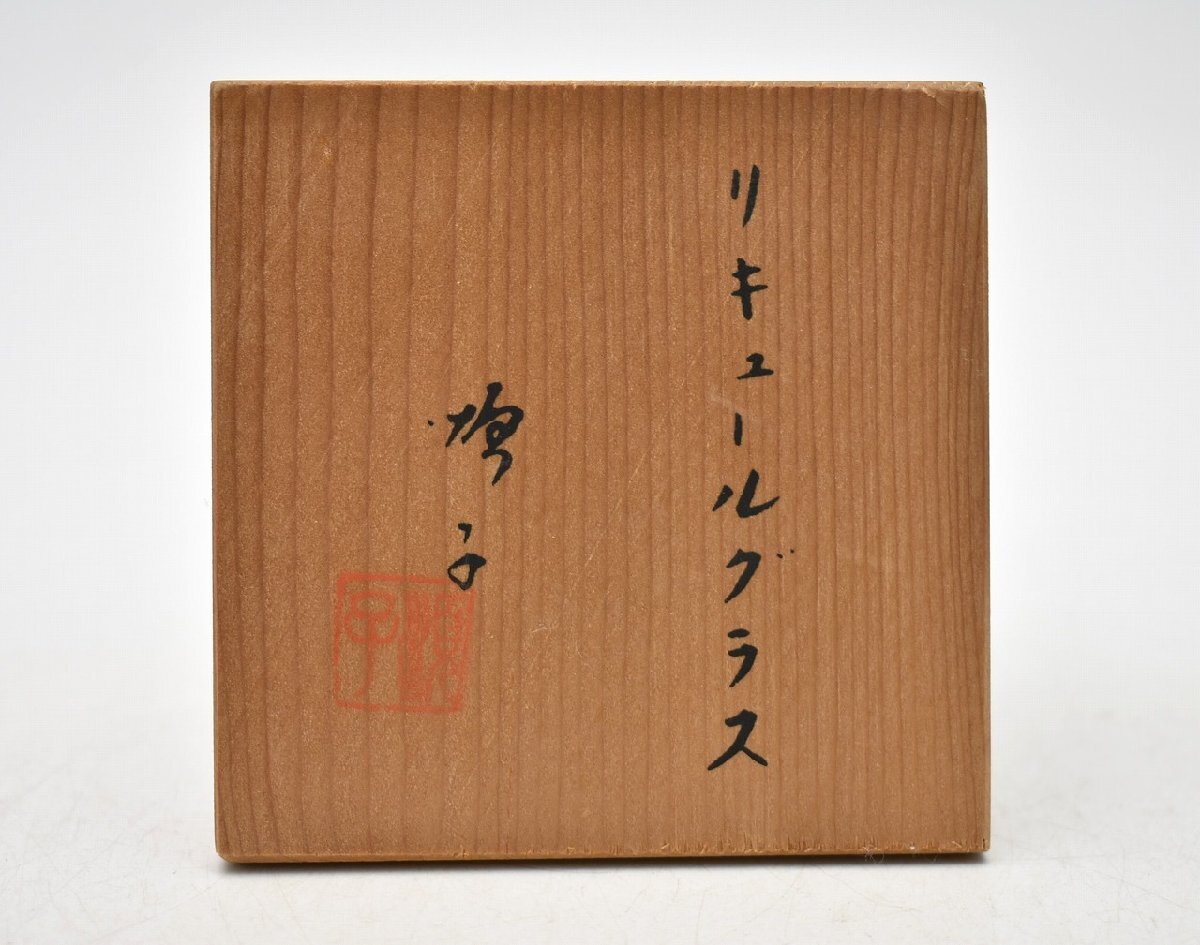 リキュールグラス
子